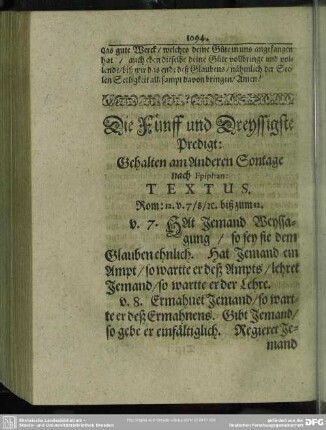 1094.
das gute Werck / welches deine Güte in uns angefangen
hat / auch eben dieselbe deine Güte vollbringe und vol-
lende / biß wir das ende deß Glaubens / nähmlich der See-
len Seeligkeit allesampt davon bringen / Amen /
Die Fünff und Dreyssigste
Predigt:
Gehalten am Anderen Sontage
nach Epiphan:
TEXTUS.
Rom: 12. v. 7/8/2c. biß zum 12.
v. 7. HAt Jemand Weyssa-
gung / so sey sie dem
Glauben ehnlich. Hat Jemand ein
Ampt / so wartte er deß Ampts / lehret
Jemand / so wartte er der Lehre.
v. 8. Ermahnet Jemand / so wart-
te er deß Ermahnens. Gibt Jemand /
so gebe er einfältiglich. Regieret Je-
mand
DFG